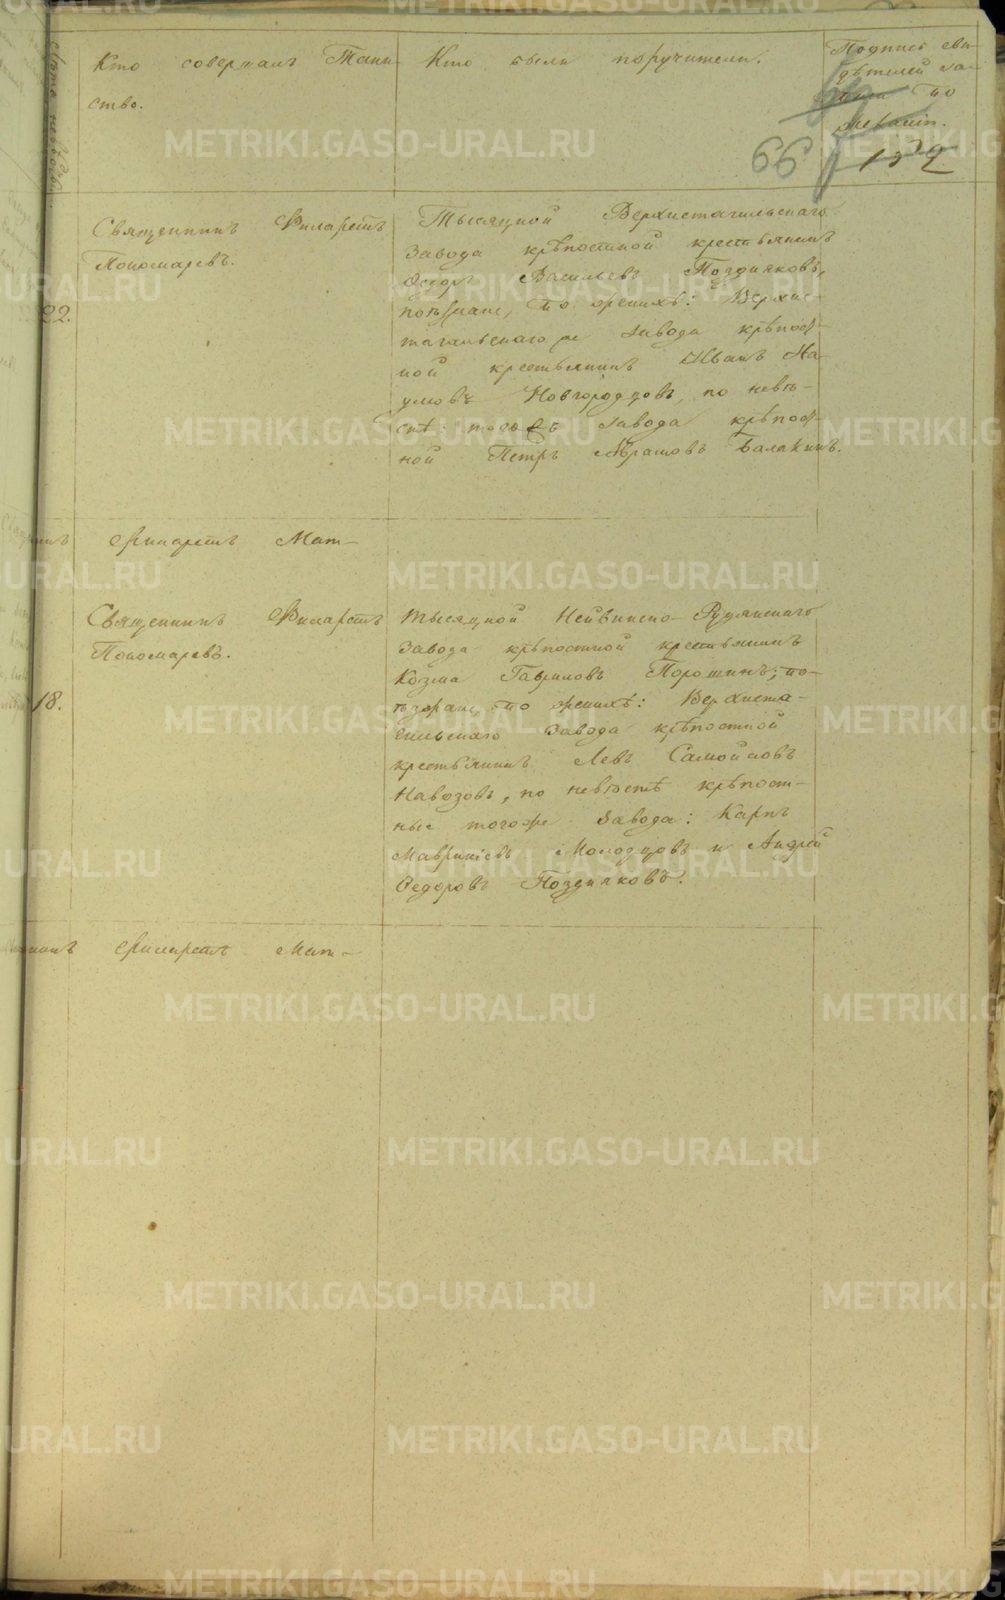 Кто совершалъ Таин-
ство.
Кто были поручители.
Подпись сви-
дѣтелей за-
по
желанiю.
66
132
Священникъ Филаретъ
Пономаревъ.
22.
Тысяцкой Верхнетагильскаго
Завода крѣпостной крестьянинъ
Ѳедоръ Васильевъ Поздняковъ,
поѣзжане, по женихѣ: Верхне-
тагильскаго же Завода крѣпост-
ной крестьянинъ Иванъ На-
умовъ Новгородцовъ, по невѣ-
стѣ: тогожъ Завода крѣпост-
ной Петръ Абрамовъ Балакинъ.
Филаретъ Мат-
Священникъ Филаретъ
Пономаревъ.
18.
Тысяцкой Нейвинско-Рудянскаго
Завода крѣпостной крестьянинъ
Козма Гавриловъ Порошинъ; по-
ѣзжане, по женихѣ: Верхнета-
гильскаго Завода крѣпостной
крестьянинъ Левъ Самойловъ
Навозовъ, по невѣстѣ крѣпост-
ные тогоже Завода: Карпъ
Маврикiевъ Молодцовъ и Андрей
Ѳедоровъ Поздняковъ.
Филаретъ Мат-
METRIKI.GASO-URAL.RU